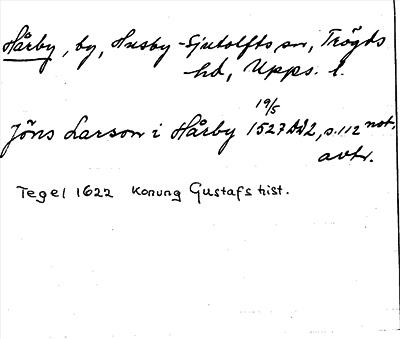 Hårby, by, Husby-Sjutolfts sn, Trögds
hd, Upps. l.
19/5
Jöns Larson i Hårby 1527 AA2, s. 112 not.
avtr.
Tegel 1622 Konung Gustafs hist.